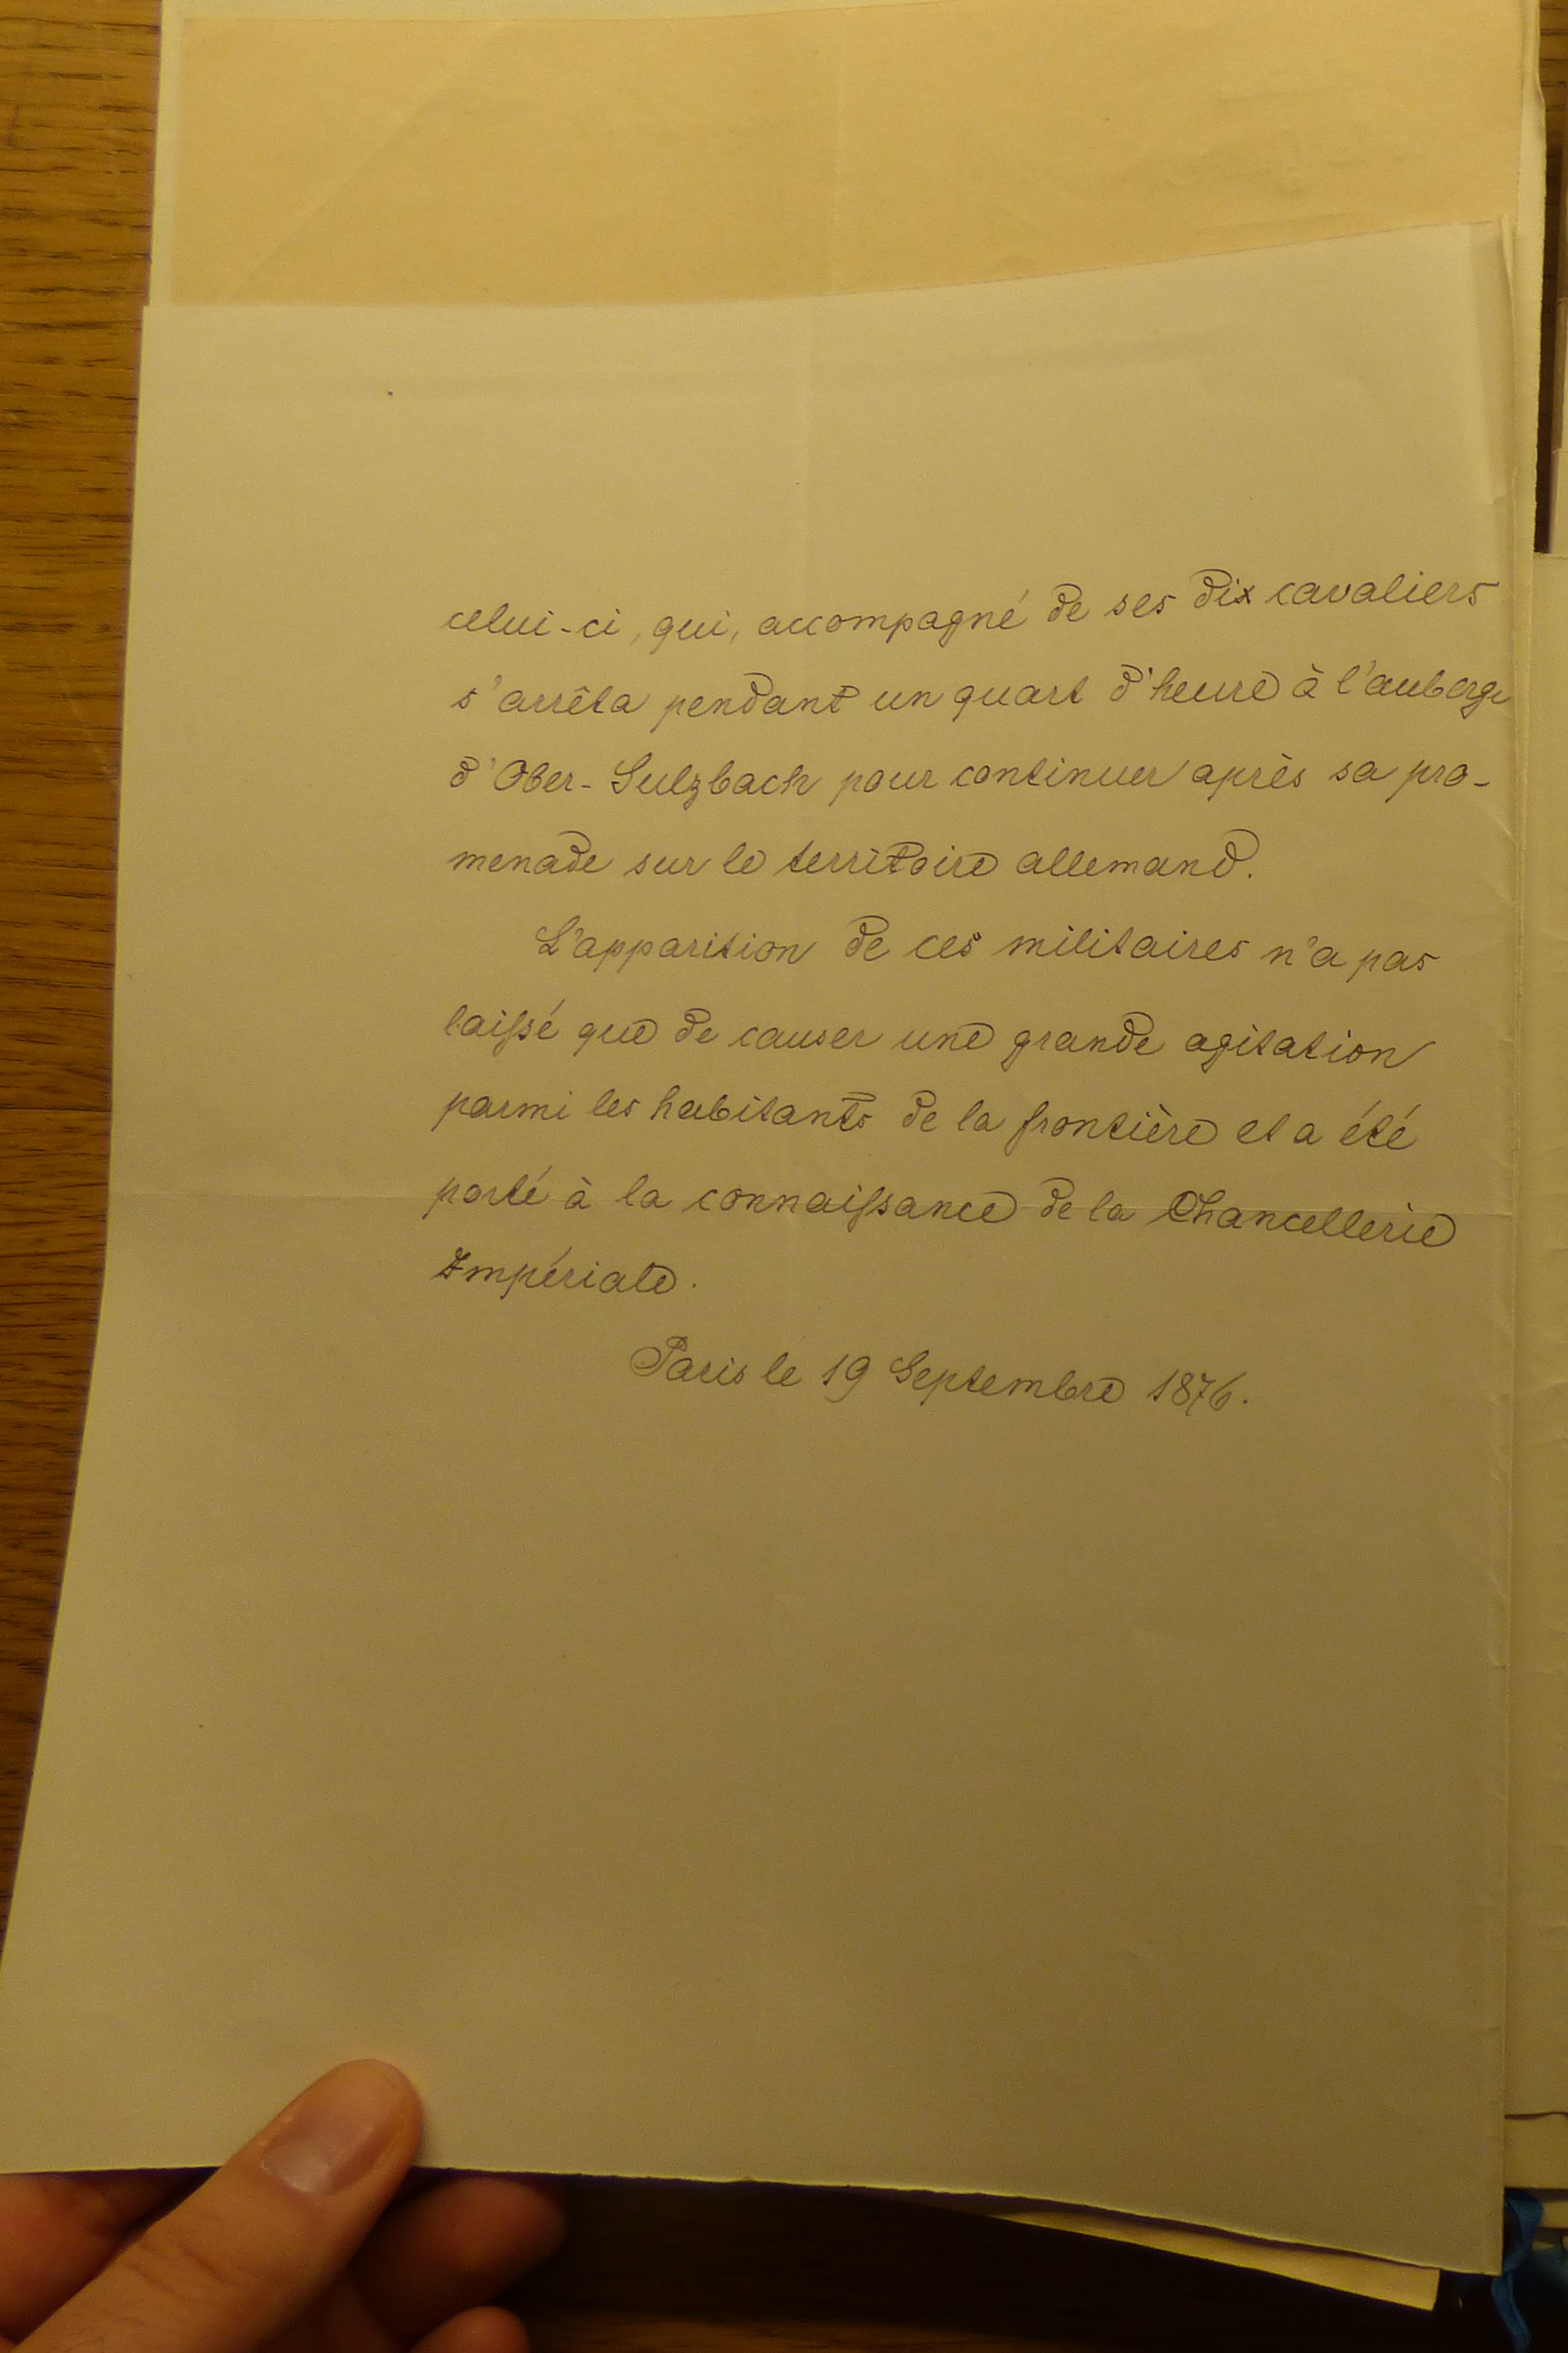 celui-ci, qui, accompagné de ses dix cavaliers
s'arrêta pendant un quart d'heure à l'auberge
d'Ober-Sulzbach pour continuer après sa pro-
menade sur le territoire allemand.
L'apparition de ces militaires n'a pas
laissé que de causer une grande agitation
parmi les habitants de la frontière et a été
porté à la connaissance de la Chancellerie
Impériale.
Paris le 19 Septembre 1876.